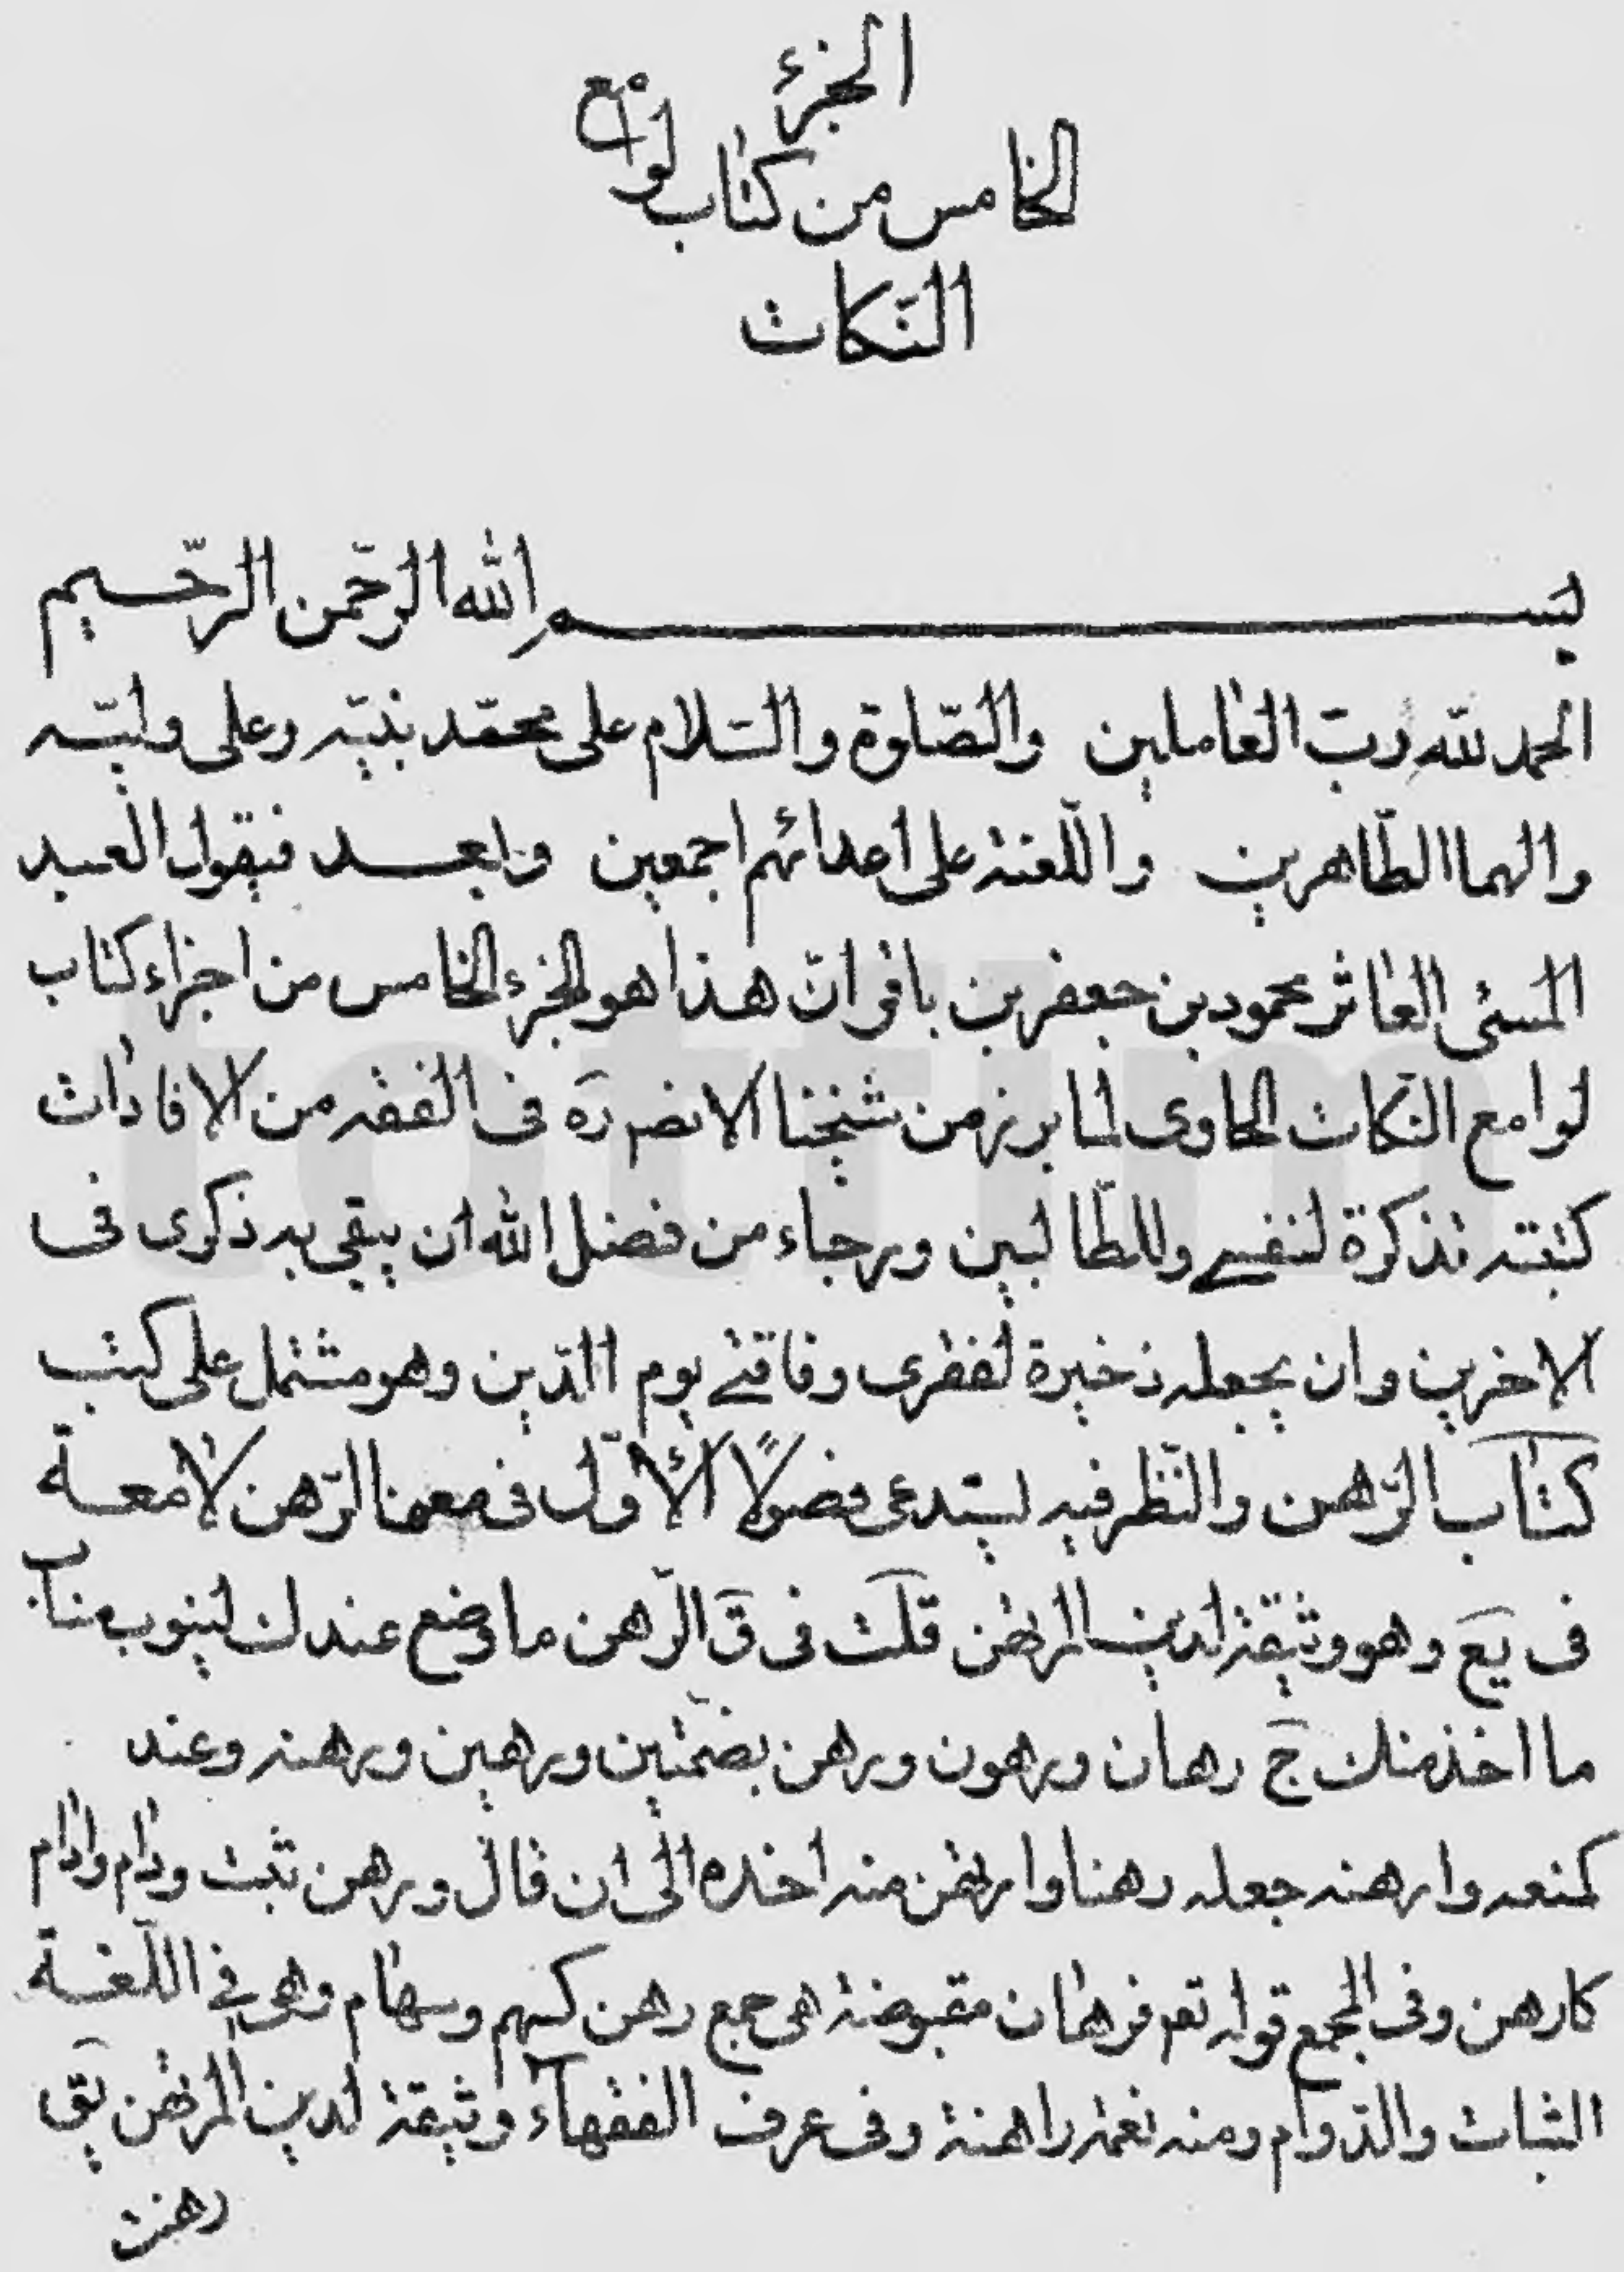 الجزء
الخامس من كتاب لوامع
النكات
بسم الله الرّحمن الرّحيم
الحمد للّه ربّ العاملين والصّلوة والسّلام على محمّد نبيّه وعلى وليّه
والهما الطّاهرين واللّعنة على اعدائهم اجمعين وبعد فيقول العبد
المسئى العاثر محمود بن جعفر بن باقر انّ هذا هو الجزء الخامس من اجزاء كتاب
لوامع النّكات الحاوى لما برز من شيخنا الانصر ره فى الفقه من الافادات
كتبته تذكرة لنفسى وللطّالبين ورجاء من فضل الله ان يبقى به ذكرى فى
الاخرين وان يجعله ذخيرة لفقرى وفاقتى يوم الدّين وهو مشتمل على كتب
كتاب الرّهن والنّظر فيه يستدعى فصولًا الأوّل فى معنا الرّهن لامعة
فى يع وهو وثيقة لدين المرتهن قلت فى ق الرّهن ما وضع عندك لينوب مناب
ما اخذ منك ج رهان ورهون ورهن بضمّتين ورهين ورهنه وعند
كمنعه وارهنه جعله رهنا وارتهن منه اخذه الى ان قال ورهن ثبت ودام وادام
كارهن وفى المجمع قوله تعم فرهان مقبوضة هى جمع رهن كسهم وسهام وهى فى اللّغة
الثبات والدّوام ومنه نعمة راهنة وفى عرف الفقهاء وثيقة لدين المرتهن يق
رهنت